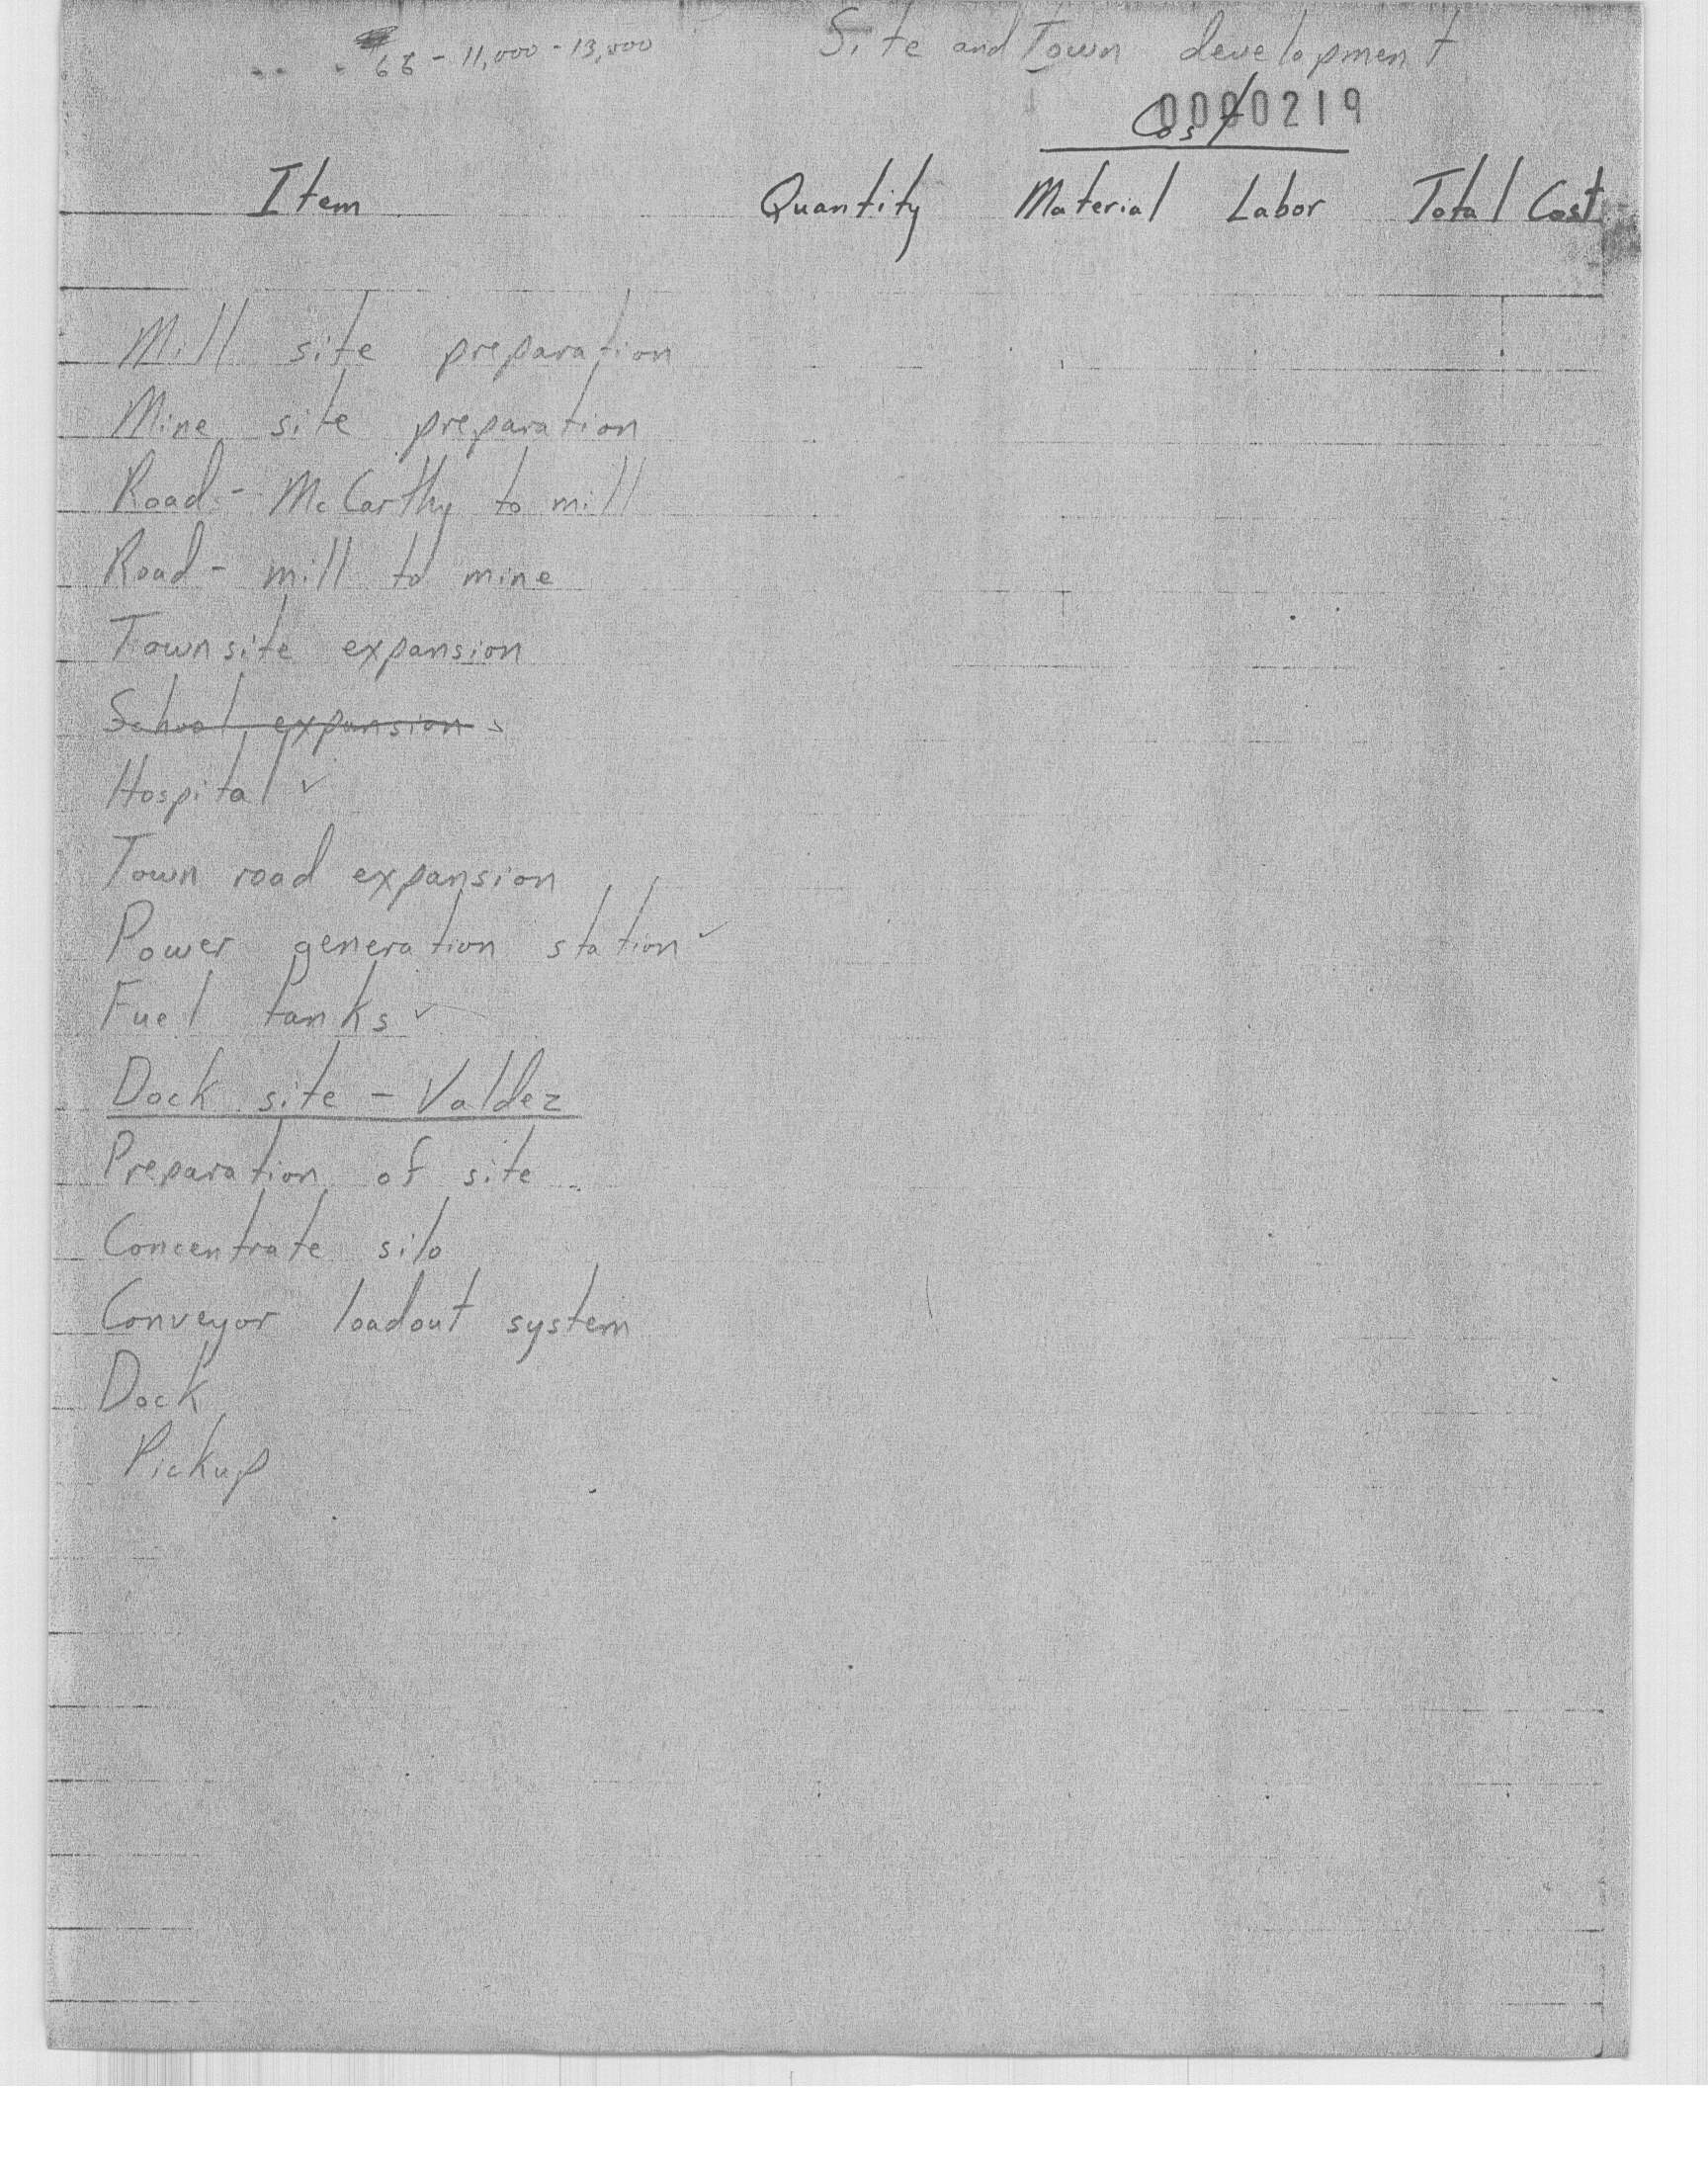 66 - 11,000 - 13,000
Site and Town development
0000219
Cost
Item Quantity Material Labor Total Cost
Mill site preparation
Mine site preparation
Road - McCarthy to mill
Road - mill to mine
Townsite expansion
School expansion
Hospital ✓
Town road expansion
Power generation station ✓
Fuel tanks ✓
Dock site - Valdez
Preparation of site
Concentrate silo
Conveyor loadout system
Dock
Pickup